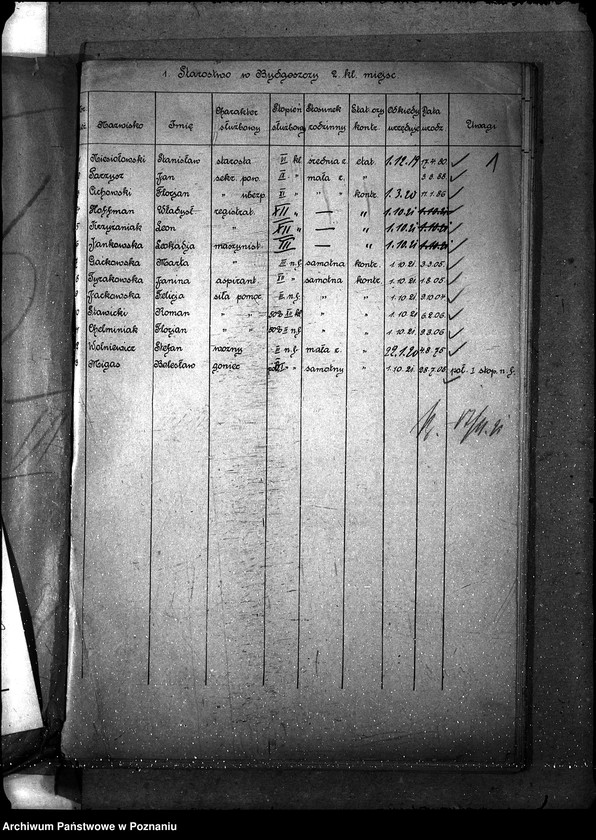 1. Starostwo w Bydgoszczy 2. kl. miejsc
Nazwisko Imię Charakter służbowy Stopień służbowy Stosunek rodzinny Etat. czy kontr. Od kiedy urzęduje Data urodz. Uwagi
Niesiołowski Stanisław starosta VI kl średnia r. etat. 1.12.19 17.4.80 1
Parzysz Jan sekr. pow. " mała r. " 3.8.88
Cichowski Florjan " " " " kontr. 1.3.20 17.1.86
Hoffman Władysł registrat. XII " — " 1.10.21
Krzyżaniak Leon " XII " — " 1.10.21
Jankowska Leokadja maszynist. — " 1.10.21
Gackowska Marta " n.g. samotna kontr. 1.10.21 3.3.05
Tyrakowska Janina aspirant. samotna kontr. 1.10.21 1.8.05
Jackowska Felicja siła pomoc. n.g. " " 1.10.21 9.10.04
Sławicki Roman " " 50% kl " " 1.10.21 6.2.06
Chelminiak Florjan " " 50% n.g. " " 1.10.21 23.06
Wolniewicz Stefan wozny n.g. mała r. " 22.1.20 4.8.75
Migas Bolesław goniec " samotny " 1.10.21 28.7.06 poł. I stop. n.g.